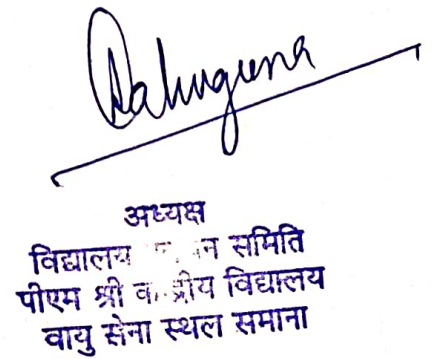 Bahuguna
अध्यक्ष
विद्यालय समिति
पीएम श्री विद्यालय
वायु सेना स्थल समाना